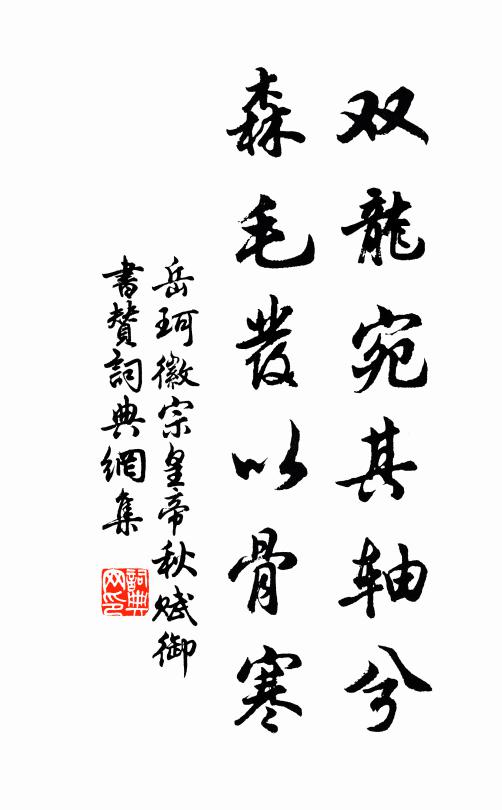 双龍宛其轴兮
森毛發以骨寒
岳珂徽宗皇帝秋赋御
書贊詞典網集
詞典
网印